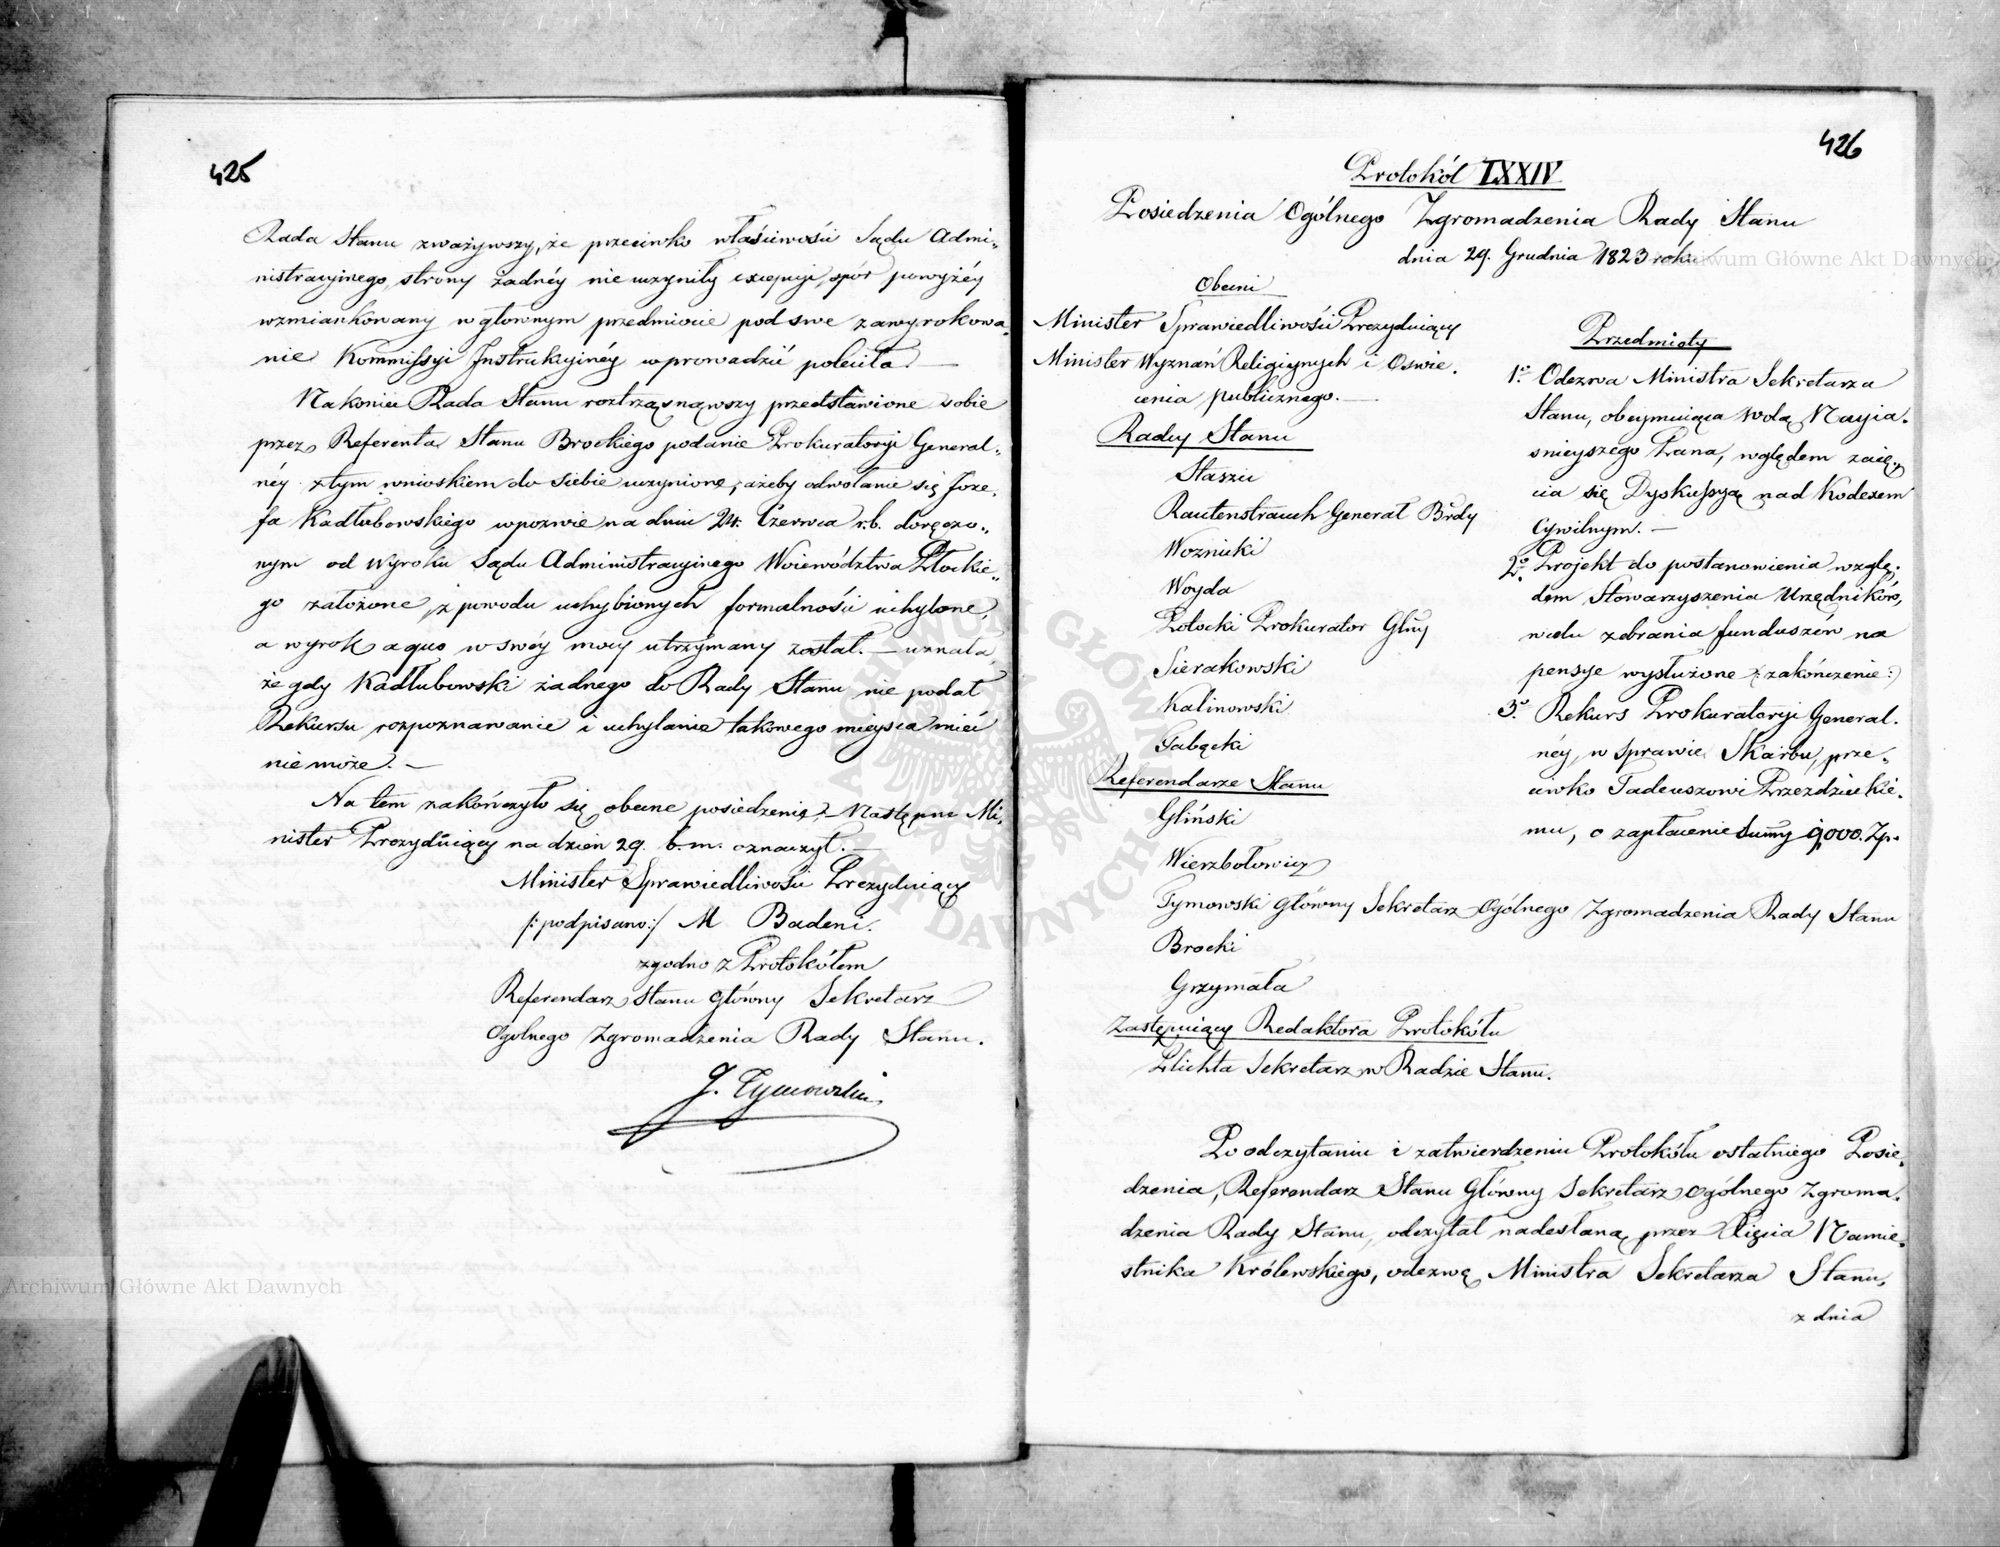 425
Rada Stanu zważywszy, że przeciwko właściwości Sądu Admi„
nistracyjnego, strony żadnéy nie uczyniły excepcyi, spór powyżéy
wzmiankowany w głownym przedmiocie pod swe zawyrokowa„
nie Kommissyi Instrukcyinéy wprowadzić poleciła. —
Nakoniec Rada Stanu roztrząsnąwszy przedstawione sobie
przez Referenta Stanu Brockiego podanie Prokuratoryi General„
néy z tym wnioskiem do siebie uczynione, ażeby odwołanie się Joze„
fa Kadłubowskiego w pozwie na dniu 24. Czerwca r.b. doręczo„
nym od Wyroku Sądu Administracyinego Woiewództwa Płockie„
go założone, z powodu uchybionych formalności uchylone,
a wyrok a quo w swéy mocy utrzymany został. — uznała,
że gdy Kadłubowski żadnego do Rady Stanu nie podał
Rekursu rozpoznawanie i uchylanie takowego mieysca mieć
nie może. —
Na tem zakończyło się obecne posiedzenie, Następne Mi„
nister Prezyduiący na dzień 29. b.m. oznaczył. —
Minister Sprawiedliwości Prezyduiący
/:podpisano:/ M Badeni.
zgodno z Protokółem
Referendarz Stanu Główny Sekretarz
Ogolnego Zgromadzenia Rady Stanu.
J. Tymowski
426
Protokół LXXIV
Posiedzenia Ogólnego Zgromadzenia Rady Stanu
dnia 29. Grudnia 1823 roku
Obecni
Minister Sprawiedliwości Prezyduiący
Minister Wyznań Religiynych i Oswie„
cenia publicznego. —
Radcy Stanu
Staszic
Rautenstrauch Generał Brdy
Woznicki
Woyda
Potocki Prokurator Glny
Sierakowski
Kalinowski
Gabęcki
Referendarze Stanu
Gliński
Wierzbołowicz
Tymowski Główny Sekretarz Ogólnego Zgromadzenia Rady Stanu
Brocki
Grzymała
Zastępuiący Redaktora Protokółu
Plichta Sekretarz w Radzie Stanu.
Przedmioty
1.° Odezwa Ministra Sekretarza
Stanu, obeymuiąca wolą Nayia„
snieyszego Pana, względem zaię„
cia się Dyskussyą nad Kodexem
Cywilnym. —
2.° Projekt do postanowienia wzglę„
dem Stowarzyszenia Urzędników,
w celu zebrania funduszów na
pensye wysłużone /:zakończenie:/
3.° Rekurs Prokuratoryi General„
néy, w Sprawie Skarbu, prze„
ciwko Tadeuszowi Przezdzieckie„
mu, o zapłacenie Summy 9,000. Zp.
Po odczytaniu i zatwierdzeniu Protokółu ostatniego Posie„
dzenia, Referendarz Stanu Główny Sekretarz Ogólnego Zgroma„
dzenia Rady Stanu, odczytał nadesłaną przez Xięcia Namie„
stnika Królewskiego, odezwę Ministra Sekretarza Stanu,
z dnia
Archiwum Główne Akt Dawnych
Archiwum Główne Akt Dawnych
ARCHIWUM GŁÓWNE AKT DAWNYCH